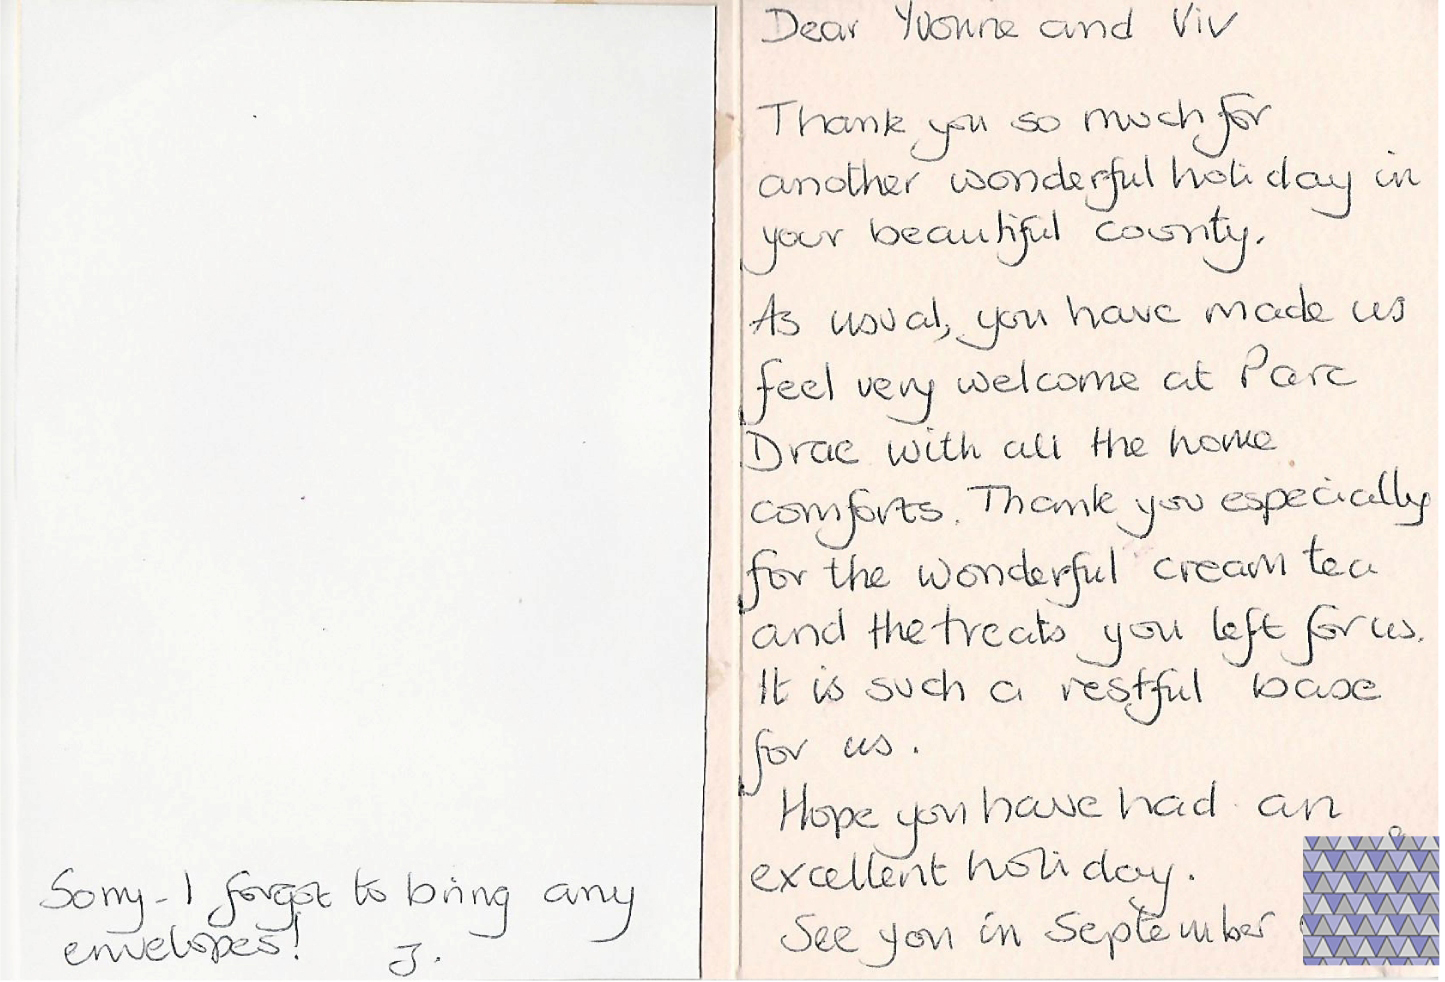 Sorry - I forgot to bring any
envelopes! J.
Dear Yvonne and Viv
Thank you so much for
another wonderful holiday in
your beautiful county.
As usual, you have made us
feel very welcome at Parc
Drac with all the home
comforts. Thank you especially
for the wonderful cream tea
and the treats you left for us.
It is such a restful base
for us.
Hope you have had an
excellent holiday.
See you in September